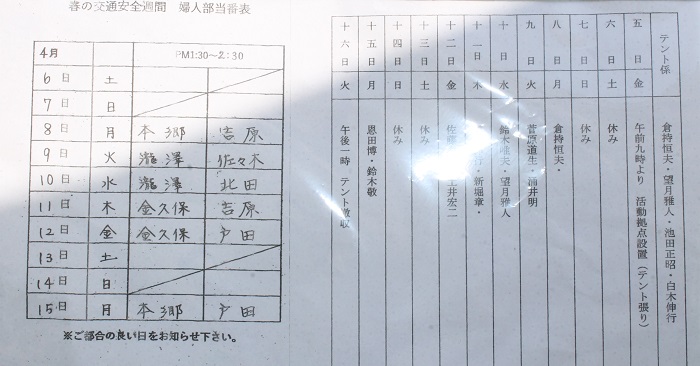 春の交通安全週間　婦人部当番表
4月 PM1:30～2:30
6日 土
7日 日
8日 月 本郷 吉原
9日 火 瀧澤 佐々木
10日 水 瀧澤 北田
11日 木 金久保 吉原
12日 金 金久保 戸田
13日 土
14日 日
15日 月 本郷 戸田
※ご都合の良い日をお知らせ下さい。
テント係 倉持恒夫・望月雅人・池田正昭・白木伸行
五日 金 午前九時より　活動拠点設置（テント張り）
六日 土 休み
七日 日 休み
八日 月 倉持恒夫・
九日 火 菅原道生・浦井明
十日 水 鈴木唯夫・望月雅人
十一日 木 行・新堀章・
十二日 金 佐藤 土井宏二
十三日 土 休み
十四日 日 休み
十五日 月 恩田博・鈴木敬
十六日 火 午後一時　テント撤収